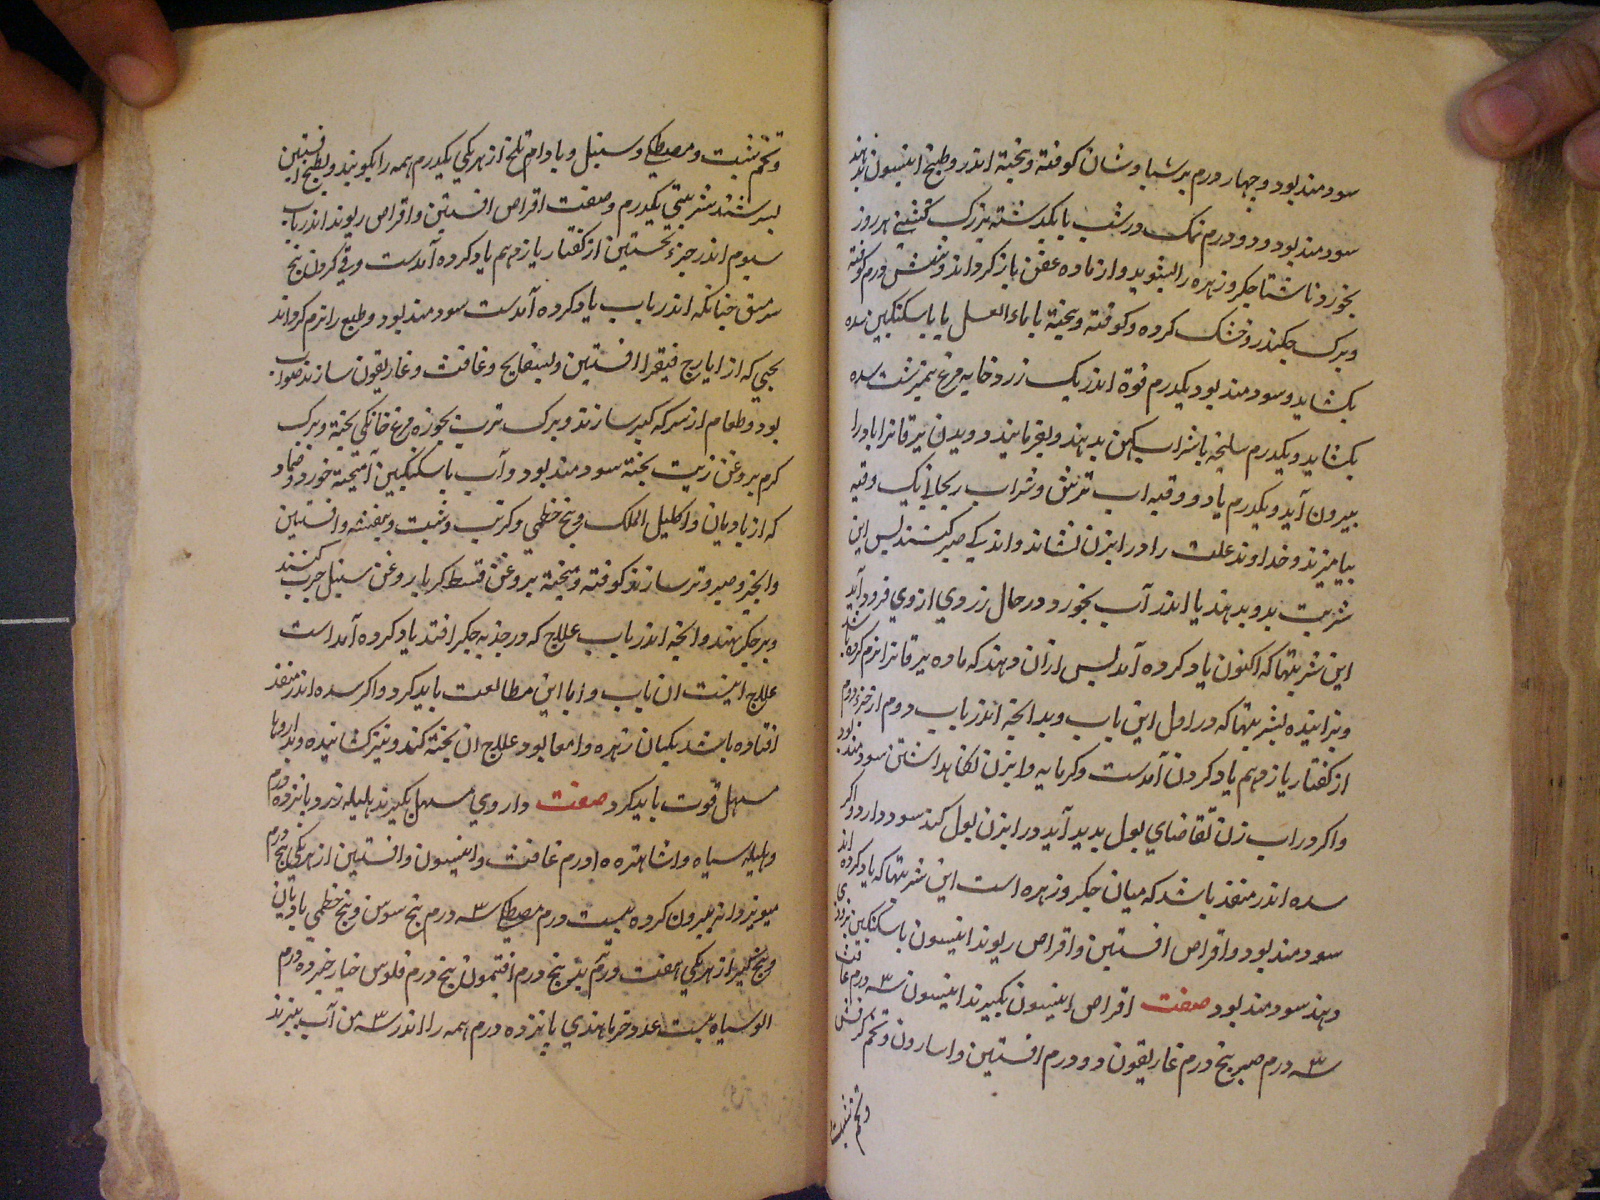 سودمند بود و چهار درم برشیاوشان کوفته و بیخته اندر طبیخ انیسون بدهند
سودمند بود و دو درم نمک در شب با یک رشته بزرک کشنیز هر روز
بخورد ناشتا جکر و زهره را بشوید و از ماده عفن باز کرداند و شش درم کوفته
و برک چکندر خشک کرده و کوفته و بیخته با ماء العسل یا با سکنکبین سده
بکشاید و سودمند بود یکدرم فوة اندر یک زرده خایه مرغ نیمبرشت سده
بکشاید و یکدرم سلیخه با شراب کهن بدهند و بفرمایند دویدن یرقانرا با ادرار
بیرون آید و یکدرم یا دو وقیه اب ترنق و شراب ریحانی یک وقیه
بیامیزند و خداوند علت را در ابزن نشاند و اندکی صبر کنند پس این
شربت بدو بدهند یا اندر آب بخورد در حال زردی از وی فرود آید
این شربتها که اکنون یاد کرده آمد پس ازان دهند که ماده یرقانرا نرم کرده باشند
و پزانیده بشربتها که در اول این باب و بدانچه اندر باب دوم از جزء دوم
از کفتار یازدهم یاد کردن آمدست و کرمابه و ابزن نکاهداشتن سودمند بود
و اکر در اب زن تقاضای بول بدید آید در ابزن بول کند سود دارد و اکر
سده اندر منفذ باشد که میان جکر و زهره است این شربتها که یاد کرده اند
سودمند بود و اقراص افستین و اقراص ریوند انیسون با سکنکبین بزوری
دهند سودمند بود صفت اقراص انیسون بکیرند انیسون سه درم غافت
سه درم صبر پنج درم غاریقون دو درم افستین و اسارون و تخم کرفس
و تخم شبت
و تخم شبت و مصطکی و سنبل و بادام تلخ از هر یکی یکدرم همه را بکوبند و بطبیخ افستین
بسرشند شربتی یکدرم و صفت اقراص افستین و اقراص ریوند اندر باب
سیوم اندر جزء نخستین از کفتار یازدهم یاد کرده آمدست و قی کردن بیخ
سرمق چنانکه اندر باب یاد کرده آمدست سودمند بود و طبع را نرم کرداند
بحبی که از ایارج فیقرا افستین و بسفایج و غافت و غاریقون سازند صواب
بود و طعام از سرکه کبر سازند و برک ترب بجوزه مرغ خانکی پخته و برک
کرم بروغن زیت پخته سودمند بود و آب با سکنکبین آمیخته خورد و ضماد
که از بادیان و اکلیل الملک و بیخ خطمی و کرنب و شبت و بنفشه و افستین
و انجیر و صبر و تر سازند کوفته و بیخته بروغن قسط کر با روغن سنبل چرب کنند
و بر جکر نهند و انچه اندر باب علاج که در جذبه جکر افتد یاد کرده آمد است
علاج اینست ان باب و با این مطالعت باید کرد و اکر سده اندر منفذ
افتاده باشد بمیان زهره و امعا بود علاج ان پخته کند و نیز کشانیده و بداروها
مسهل قوت باید کرد صفت داروی مسهل بکیرند هلیله زرد پانزده درم
و هلیله سیاه و شاهتره ده درم غافت و انیسون و افستین از هر یکی پنج درم
میویز دانه بیرون کرده بیست درم مصطکی سه درم بیخ سوس و بیخ خطمی بادیان
و بیخ کبر از هر یکی هفت درم تر پنج درم افتیمون پنج درم فلوس خیار خبر ده درم
الو سیاه بیست عدد خرما هندی پانزده درم همه را اندر سه من آب بپزند